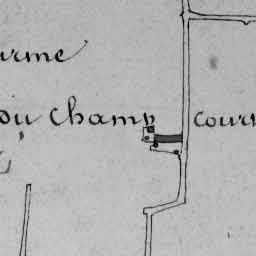 urme
ou champ cour